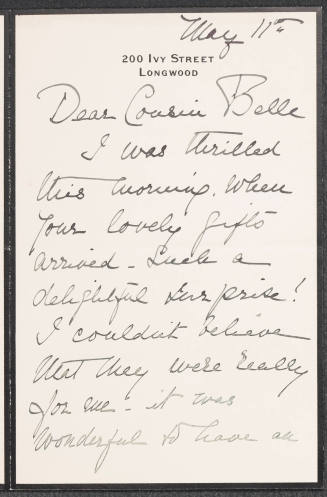 May 11th
200 Ivy Street
Longwood
Dear Cousin Belle
I was thrilled
this morning. When
your lovely gifts
arrived - Such a
delightful surprise!
I couldn't believe
that they were really
for me - it was
wonderful to have an